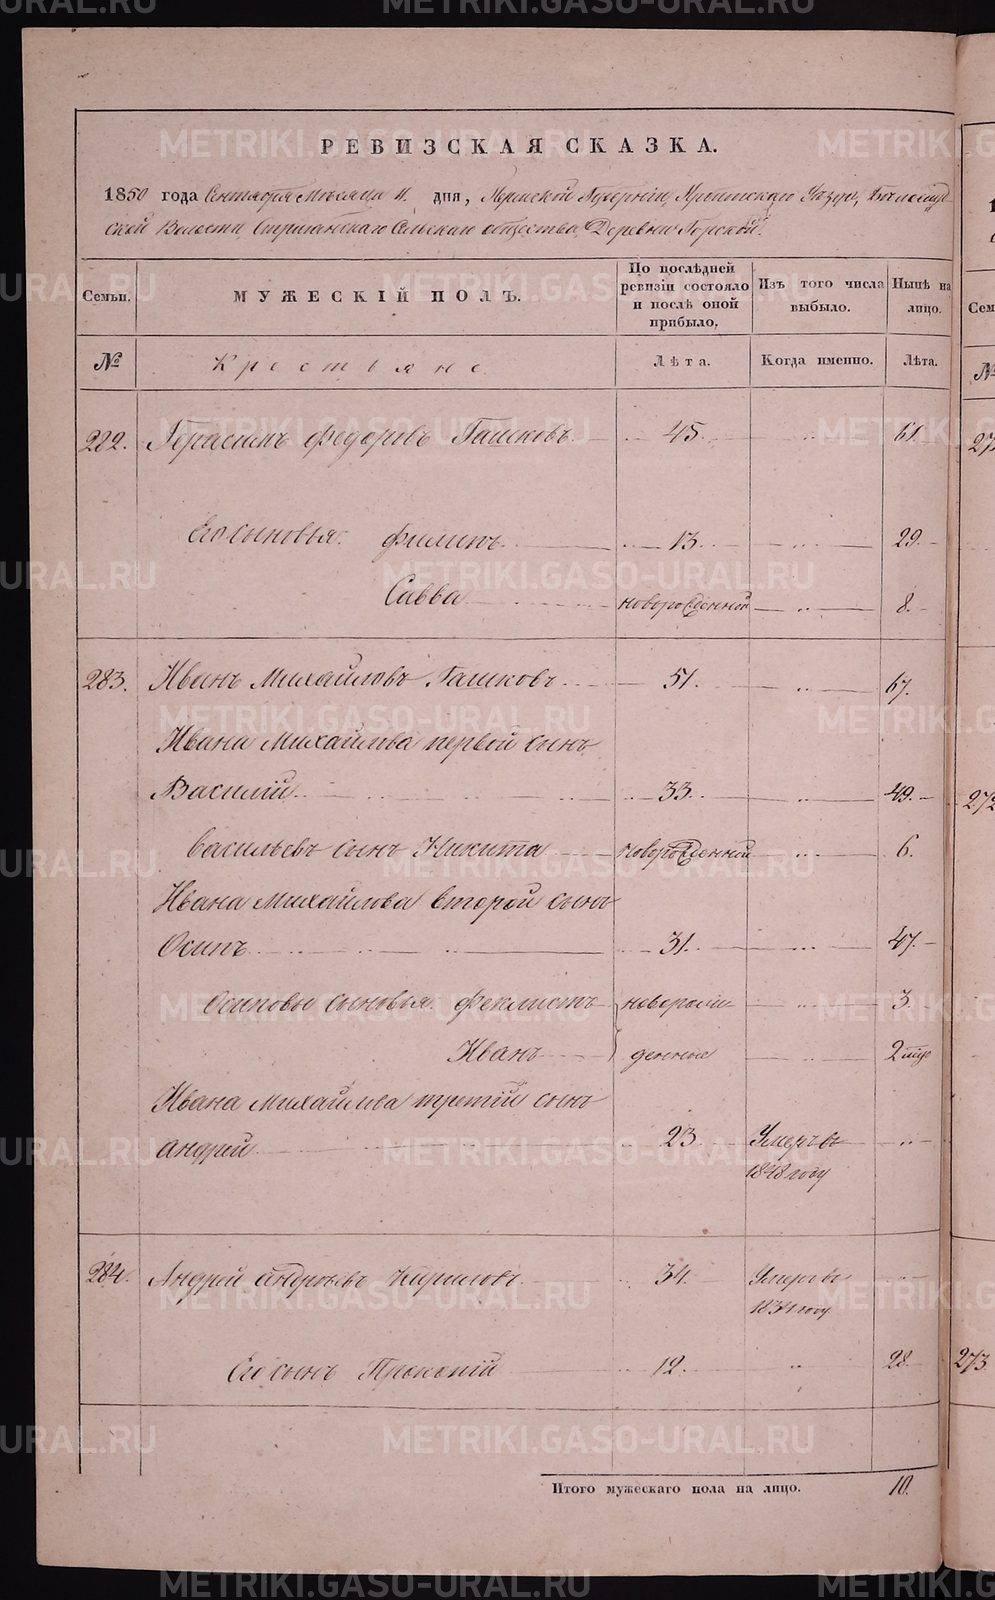 РЕВИЗСКАЯ СКАЗКА.
1850 года Сентября Мѣсяца 11 дня, Пермской Губерніи, Ирбитского Уѣзда, Бѣлослуд-
ской Волости, Стриганскаго Сельскаго общества, Деревни Горской.
Семьи. МУЖЕСКІЙ ПОЛЪ. По послѣдней ревизіи состояло и послѣ оной прибыло. Изъ того числа выбыло. Нынѣ на лицо.
№ Крестьяне Лѣта. Когда именно. Лѣта.
282. Герасимъ Федоровъ Гашковъ 45. 61.
Его сыновья: Филипъ 13. 29.
Савва новорожденной 8.
283. Иванъ Михайловъ Гашковъ 51. 67.
Ивана Михайлова первой сынъ
Василій 33. 49.
Васильевъ сынъ Никита новорожденной 6.
Ивана Михайлова второй сынъ
Осипъ 31. 47.
Осиповы сыновья: Феклистъ новорож- 3.
Иванъ денные 2
Ивана Михайлова третій сынъ
Андрей 23 Умеръ въ
1848 году
284. Андрей Андреевъ Кириловъ 34. Умеръ въ
1834 году
Его сынъ Прокопій 12. 28.
Итого мужескаго пола на лицо. 10.
272
273
METRIKI.GASO-URAL.RU